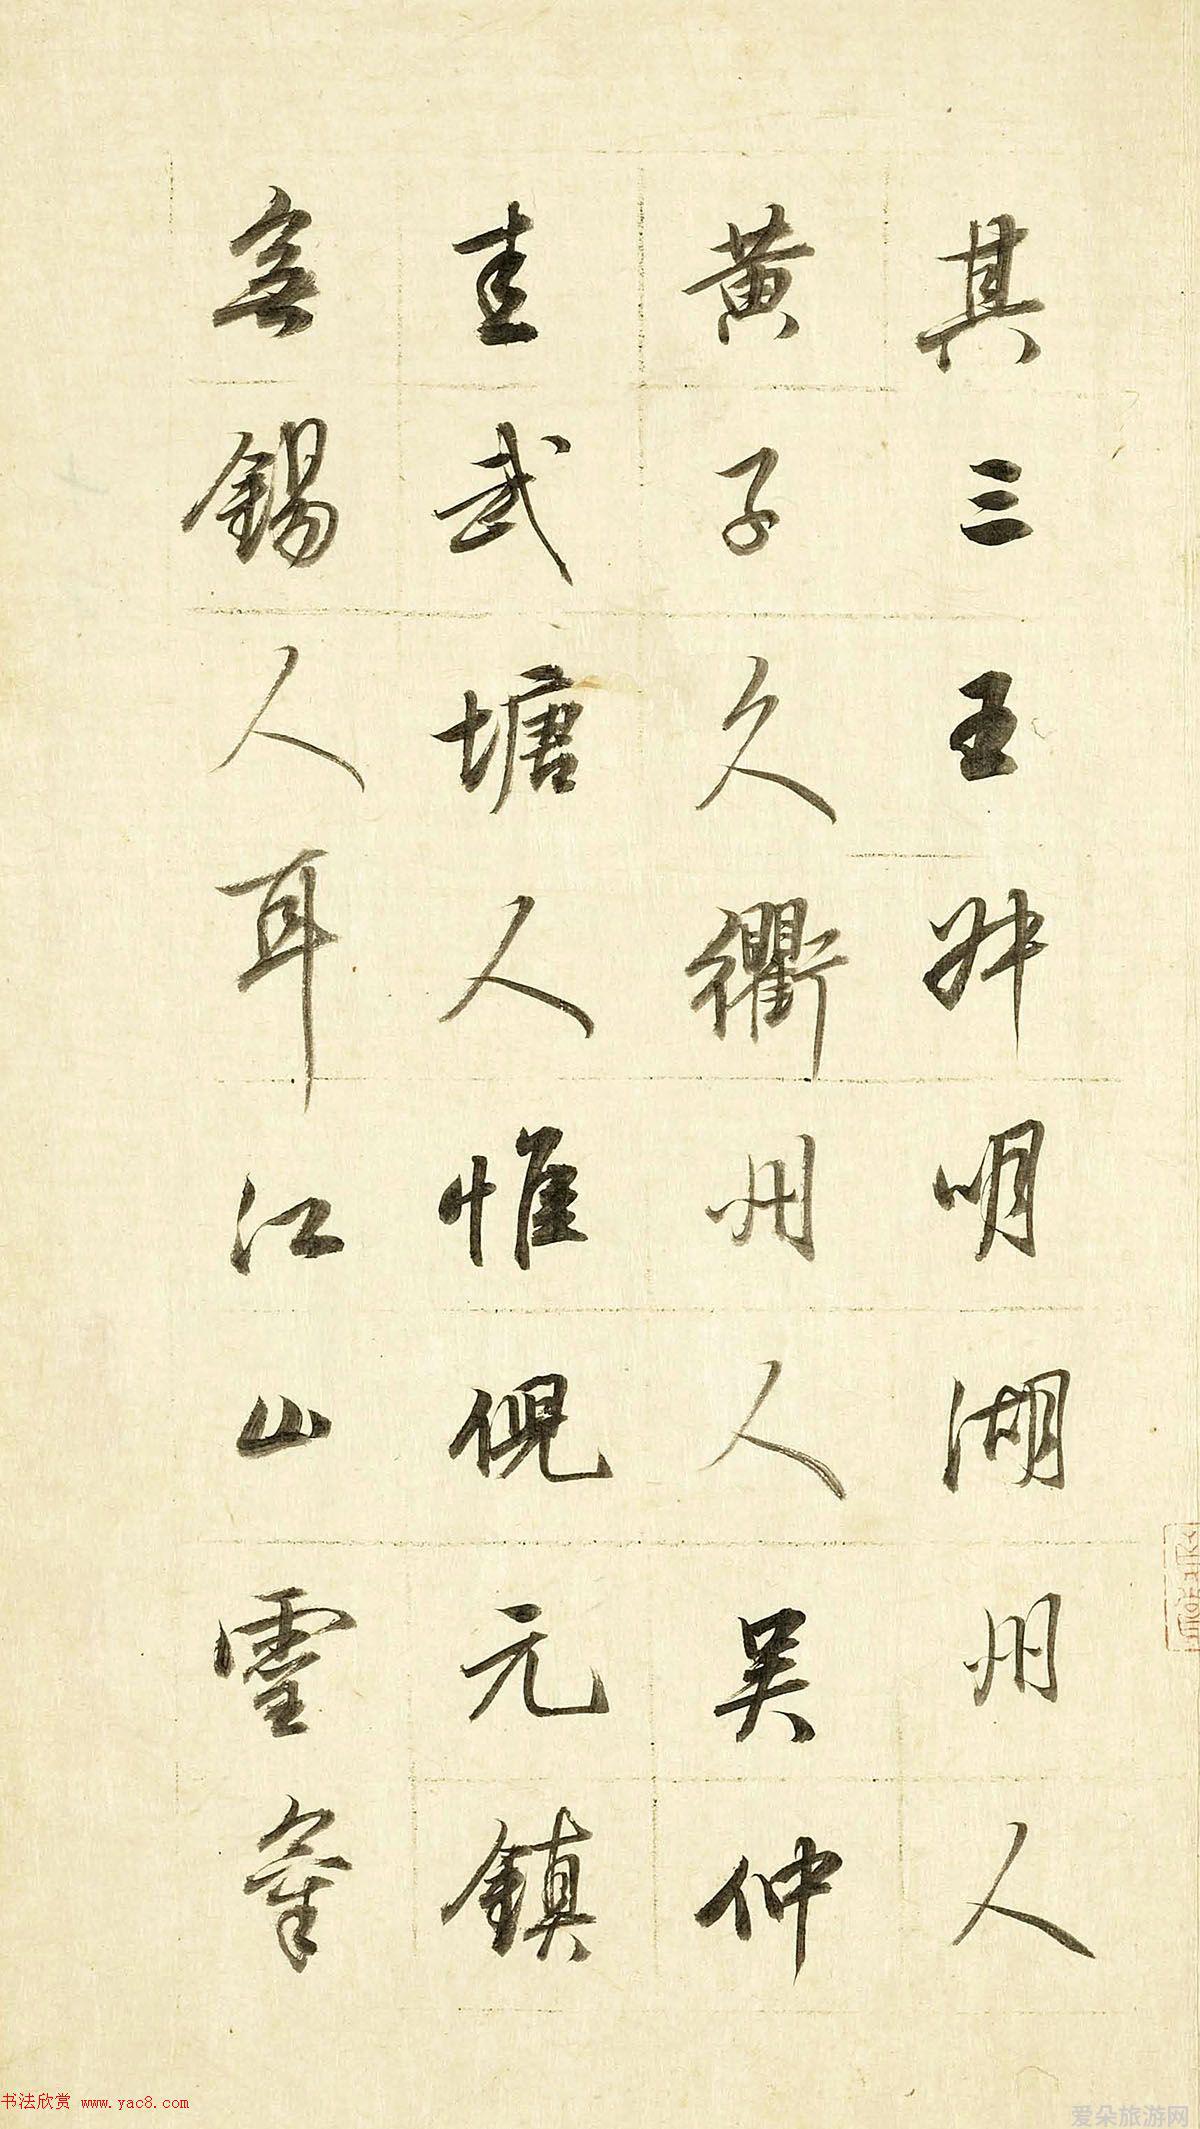 其三王叔明湖州人
黄子久衢州人吴仲
圭武塘人惟倪元鎮
無錫人耳江山靈氣
书法欣赏 www.yac8.com
爱朵旅游网